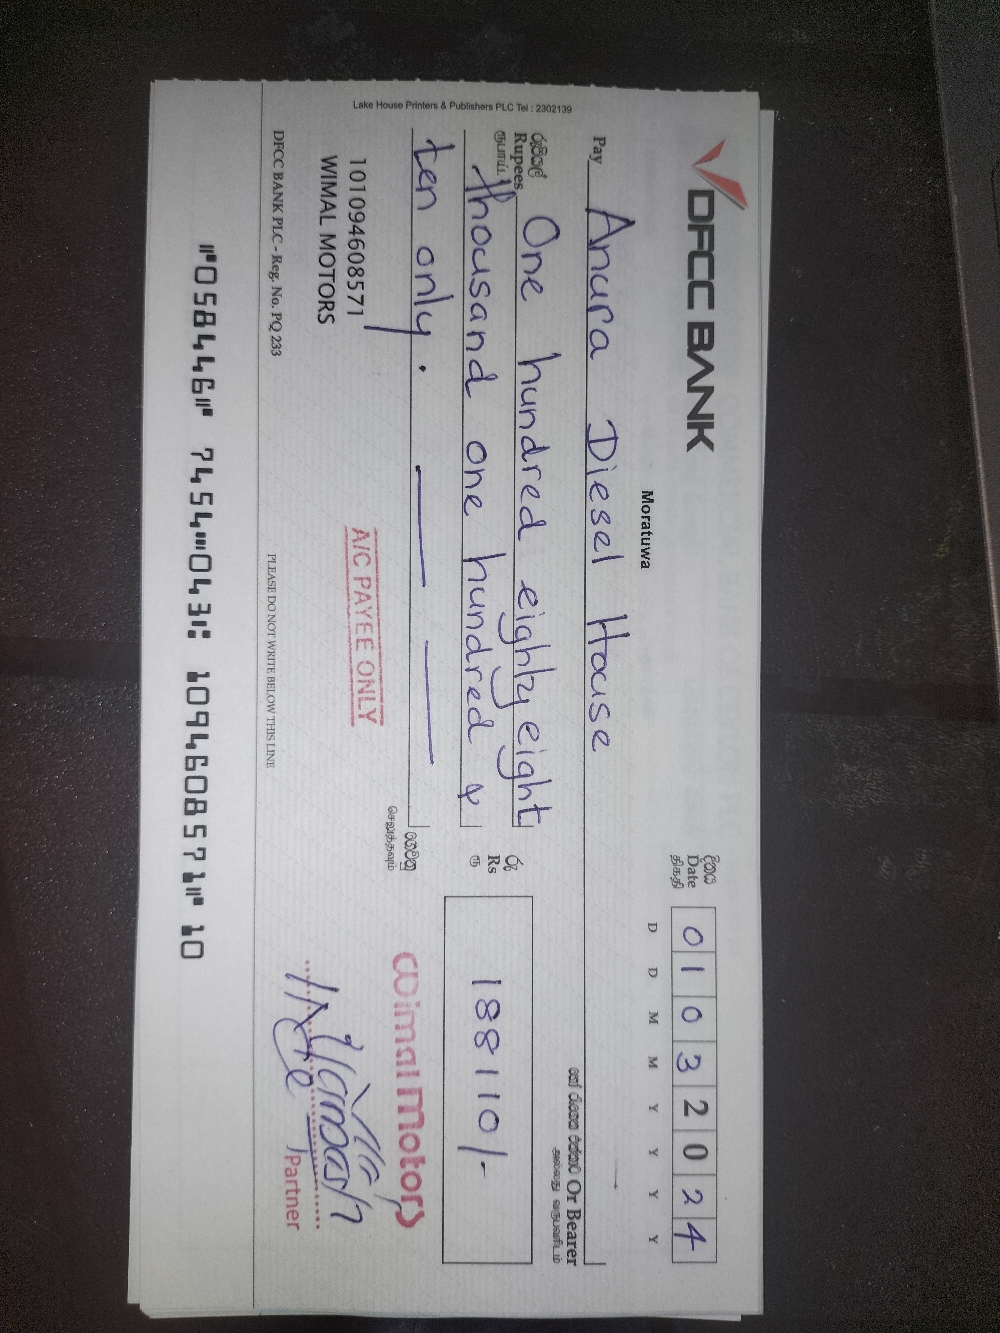 Lake House Printers & Publishers PLC Tel : 2302139
DFCC BANK
Moratuwa
දිනය
Date
திகதி
0 1 0 3 2 0 2 4
D D M M Y Y Y Y
Pay Anura Diesel House
හෝ රැගෙන එන්නාට Or Bearer
අல்லது
රුපියල්
Rupees
ரூபாய்
One hundred eighty eight
thousand one hundred &
ten only.
ගෙවනු
செலுத்தவும்
රු
Rs
ரூ
188110/-
101094608571
WIMAL MOTORS
A/C PAYEE ONLY
Wimal Motors
Partner
DFCC BANK PLC - Reg. No. PQ 233
PLEASE DO NOT WRITE BELOW THIS LINE
⑈058446⑈ 7454⑉043⑆ 101094608571⑈ 10